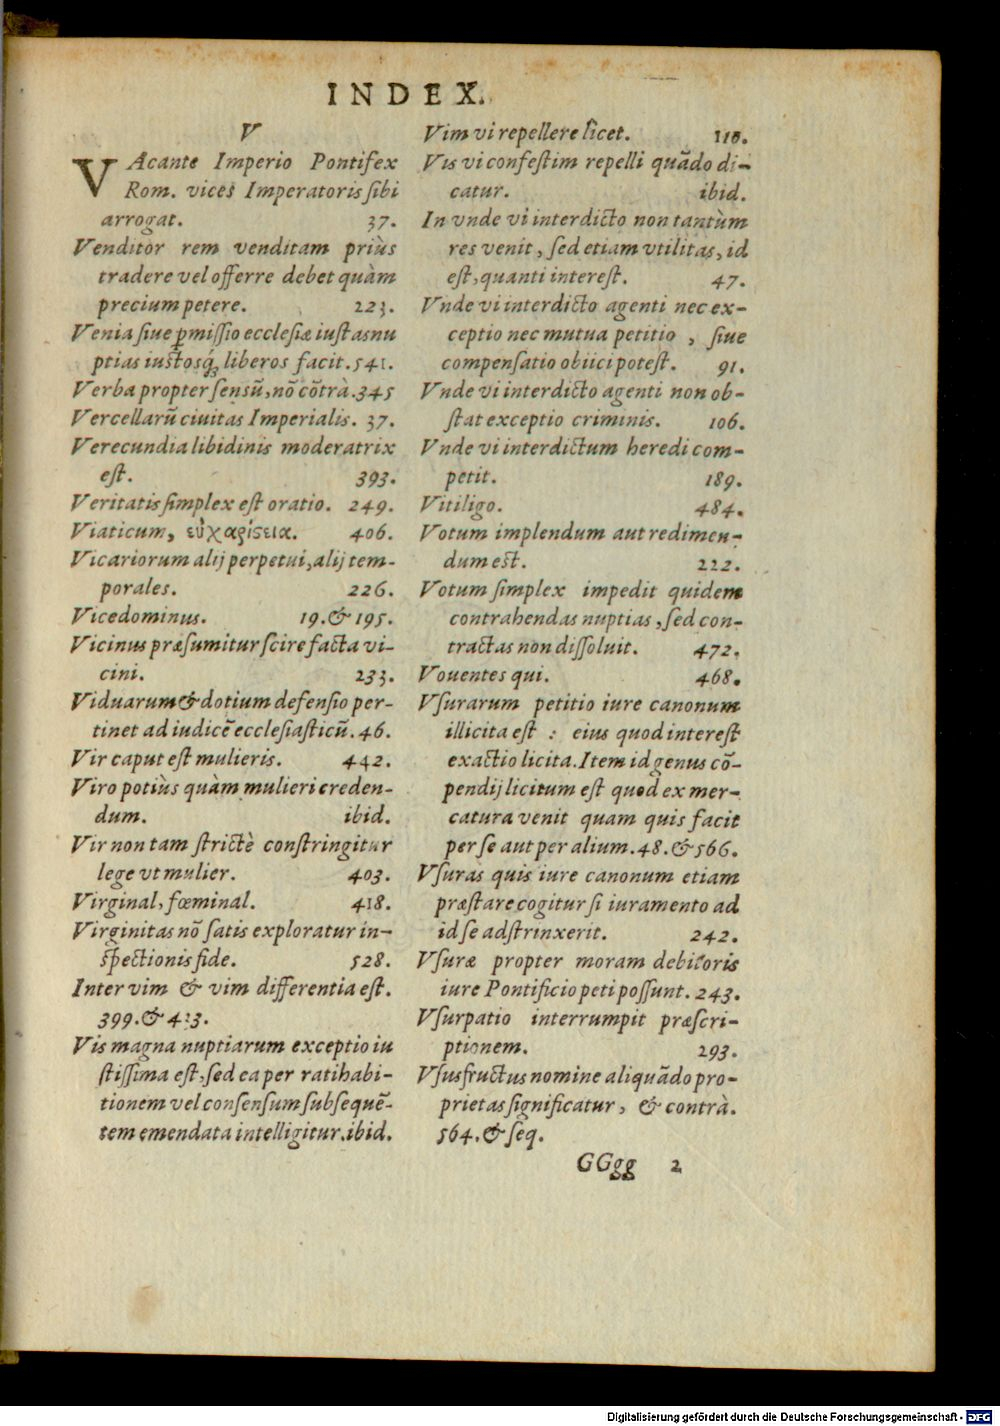 INDEX.
V
VAcante Imperio Pontifex
Rom. vices Imperatoris ſibi
arrogat. 37.
Venditor rem venditam priùs
tradere vel offerre debet quàm
precium petere. 223.
Venia ſiue p̱miſſio eccleſiæ iuſtas nu
ptias iuſtosq́ꝫ liberos facit. 541.
Verba propter ſensũ, nõ cõtrà. 345
Vercellarũ ciuitas Imperialis. 37.
Verecundia libidinis moderatrix
eſt. 393.
Veritatis ſimplex eſt oratio. 249.
Viaticum, εὐχαρίςεια. 406.
Vicariorum alij perpetui, alij tem-
porales. 226.
Vicedominus. 19. & 195.
Vicinus præſumitur ſcire facta vi-
cini. 233.
Viduarum & dotium defenſio per-
tinet ad iudicẽ eccleſiaſticũ. 46.
Vir caput eſt mulieris. 442.
Viro potiùs quàm mulieri creden-
dum. ibid.
Vir non tam ſtrictè conſtringitur
lege vt mulier. 403.
Virginal, fœminal. 418.
Virginitas nõ ſatis exploratur in-
ſpectionis fide. 528.
Inter vim & vim differentia eſt.
399. & 413.
Vis magna nuptiarum exceptio iu
ſtiſſima eſt, ſed ea per ratihabi-
tionem vel conſenſum ſubſequẽ-
tem emendata intelligitur. ibid.
Vim vi repellere licet. 110.
Vis vi confeſtim repelli quãdo di-
catur. ibid.
In vnde vi interdicto non tantùm
res venit, ſed etiam vtilitas, id
eſt, quanti intereſt. 47.
Vnde vi interdicto agenti nec ex-
ceptio nec mutua petitio, ſiue
compenſatio obiici poteſt. 91.
Vnde vi interdicto agenti non ob-
ſtat exceptio criminis. 106.
Vnde vi interdictum heredi com-
petit. 189.
Vitiligo. 484.
Votum implendum aut redimen-
dum eſt. 222.
Votum ſimplex impedit quidem
contrahendas nuptias, ſed con-
tractas non diſſoluit. 472.
Vouentes qui. 468.
Vſurarum petitio iure canonum
illicita eſt : eius quod intereſt
exactio licita. Item id genus cõ-
pendij licitum eſt quod ex mer-
catura venit quam quis facit
per ſe aut per alium. 48. & 566.
Vſuras quis iure canonum etiam
præſtare cogitur ſi iuramento ad
id ſe adſtrinxerit. 242.
Vſuræ propter moram debitoris
iure Pontificio peti poſſunt. 243.
Vſurpatio interrumpit præſcri-
ptionem. 293.
Vſusfructus nomine aliquãdo pro-
prietas ſignificatur, & contrà.
564. & ſeq.
GGgg 2
Digitalisierung gefördert durch die Deutsche Forschungsgemeinschaft - DFG